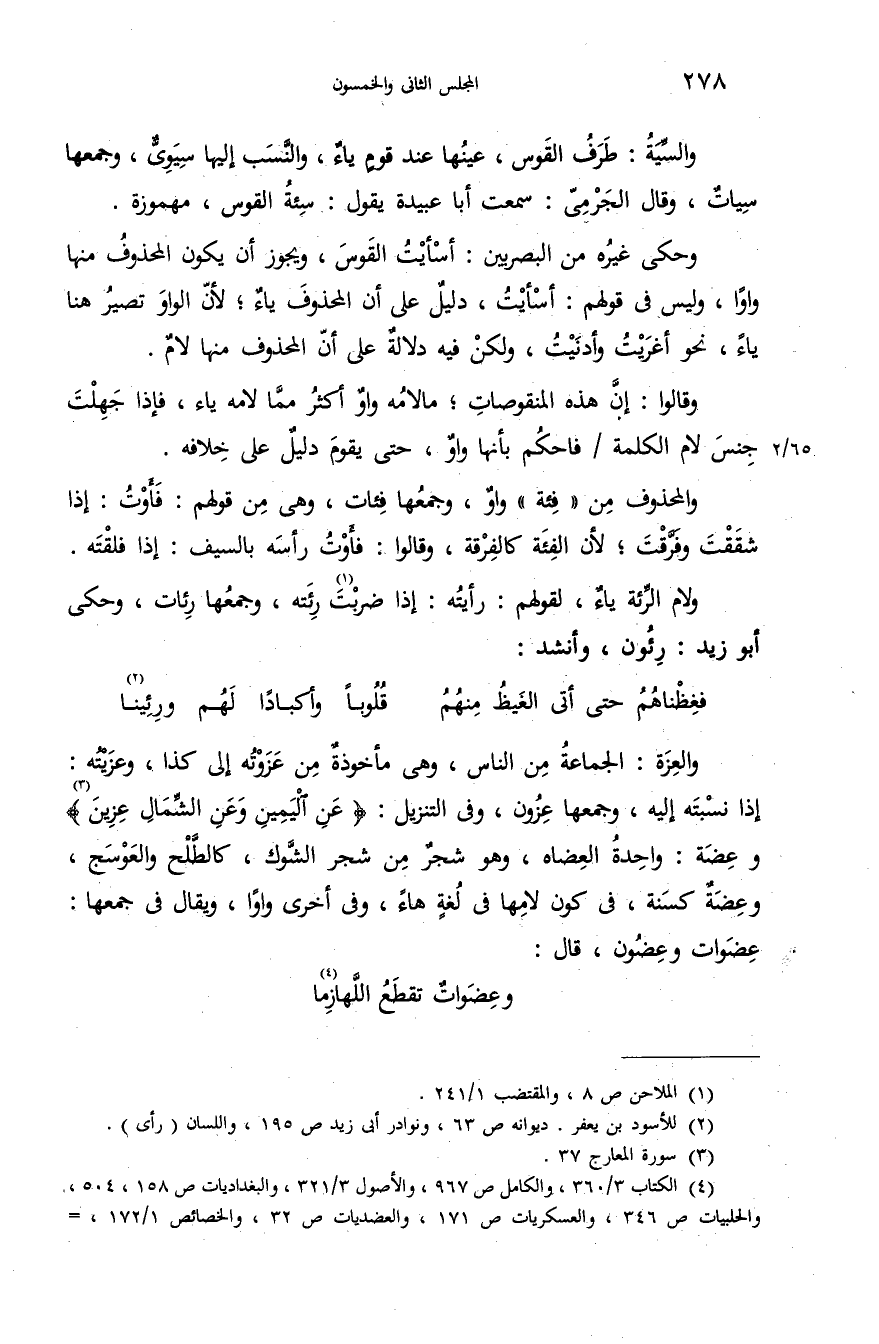 ٢٧٨
المجلس الثانى والخمسون
والسِّيَةُ : طَرَفُ القَوس ، عينُها عند قومٍ ياءٌ ، والنَّسَب إليها سِيَوِىٌّ ، وجمعها
سِياتٌ ، وقال الجَرْمِىّ : سمعت أبا عبيدة يقول : سِئةُ القوس ، مهموزة .
وحكى غيرُه من البصريين : أسْأيْتُ القَوسَ ، ويجوز أن يكون المحذوفُ منها
واوًا ، وليس فى قولهم : أسْأيْتُ ، دليلٌ على أن المحذوفَ ياءٌ ؛ لأنّ الواوَ تصيرُ هنا
ياءً ، نحو أغرَيْتُ وأدنَيْتُ ، ولكنْ فيه دلالةٌ على أنّ المحذوف منها لامٌ .
وقالوا : إنَّ هذه المنقوصاتِ ؛ مالامُه واوٌ أكثرُ ممَّا لامه ياء ، فإذا جَهِلْتَ
جِنسَ لام الكلمة / فاحكُم بأنها واوٌ ، حتى يقومَ دليلٌ على خِلافه .
٢/٦٥
والمحذوف مِن « فِئة » واوٌ ، وجمعُها فِئات ، وهى مِن قولهم : فَأَوْتُ : إذا
شقَقْتَ وفَرَّقْتَ ؛ لأن الفِئَة كالفِرْقة ، وقالوا : فأَوْتُ رأسَه بالسيف : إذا فلقْتَه .
ولام الرِّئة ياءٌ ، لقولهم : رأيتُه : إذا ضربْتَ رِئَته (١) ، وجمعُها رِئات ، وحكى
أبو زيد : رِئُون ، وأنشد :
فغِظْناهُمُ حتى أتى الغَيظُ مِنهُمُ قُلُوباً وأكبادًا لَهُم ورِئِينا (٢)
والعِزَة : الجماعةُ مِن الناس ، وهى مأخوذةٌ مِن عَزَوْتُه إلى كذا ، وعزَيْتُه :
إذا نسْبتَه إليه ، وجمعها عِزُون ، وفى التنزيل : ﴿ عَنِ ٱلْيَمِينِ وَعَنِ الشِّمَالِ عِزِينَ ﴾ (٣)
و عِضَة : واحِدةُ العِضاه ، وهو شجرٌ مِن شجر الشَّوك ، كالطَّلْح والعَوْسَج ،
وعِضَةٌ كسَنة ، فى كون لامِها فى لُغةٍ هاءً ، وفى أخرى واوًا ، ويقال فى جمعها :
عِضَوات وعِضُون ، قال :
وعِضَواتٌ تقطَعُ اللَّهازِما (٤)
(١) الملاحن ص ٨ ، والمقتضب ٢٤١/١ .
(٢) للأسود بن يعفر . ديوانه ص ٦٣ ، ونوادر أبى زيد ص ١٩٥ ، واللسان ( رأى ) .
(٣) سورة المعارج ٣٧ .
(٤) الكتاب ٣٦٠/٣ ، والكامل ص ٩٦٧ ، والأصول ٣٢١/٣ ، والبغداديات ص ١٥٨ ، ٥٠٤ ،
والحلبيات ص ٣٤٦ ، والعسكريات ص ١٧١ ، والعضديات ص ٣٢ ، والخصائص ١٧٢/١ ، =